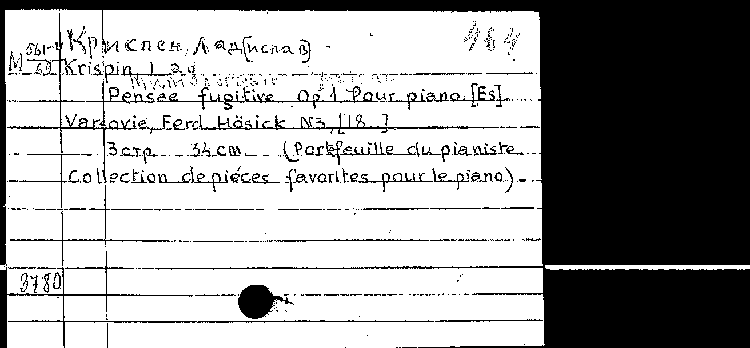 М 561-4/63 Криспен, Лад[ислав] 484
Krispin
Pensée fugitive Op 1 Pour piano [Es]
Varsovie, Ferd Hösick N3, [18..]
3 стр. 34 cm (Portfeuille du pianiste
Collection de pièces favorites pour le piano)
3780